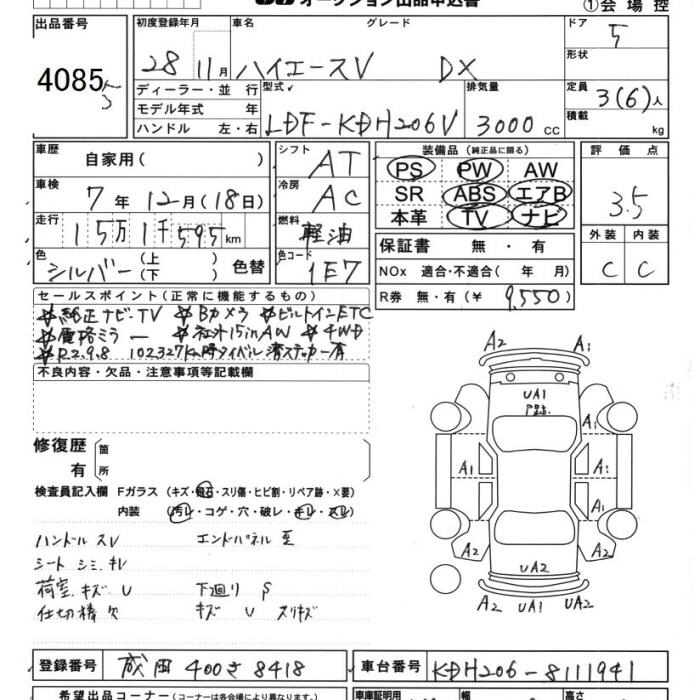 オークション出品申込書
①会場控
出品番号 初度登録年月 車名 グレード ドア
40855 28 11月 ハイエースV DX 5
形状
ディーラー・並 行 型式 排気量 定員
モデル年式 年 3(6)人
ハンドル 左・右 LDF-KDH206V 3000cc 積載 kg
車歴 自家用( ) シフト AT 装備品(純正品に限る) 評価点
車検 7年12月(18日) 冷房 AC PS PW AW 3.5
SR ABS エアB
走行 15万1千595km 燃料 軽油 本革 TV ナビ 外装 内装
色 シルバー (上 ) (下 ) 色替 色コード 1E7 保証書 無・有 C C
NOx 適合・不適合( 年 月)
R券 無・有(¥ 9,550)
セールスポイント(正常に機能するもの)
純正ナビ・TV Bカメラ ビルトインETC
ミラー 社外15inAW 4WD
R2.9.8 102327Km時タイベル済ステッカー有
不良内容・欠品・注意事項等記載欄
A2 A1
UA1
A1
A1 A1
A1
A2 A1
UA2
A2 UA1 UA2
修復歴 箇
有 所
検査員記入欄 Fガラス(キズ・飛石・スリ傷・ヒビ割・リペア跡・×要)
内装(汚レ・コゲ・穴・破レ・キレ・スレ)
ハンドル スレ エンドパネル
シート シミ キレ
荷室 キズ U 下廻り S
仕切棒 欠 キズ U スリキズ
登録番号 成田 400さ8418 車台番号 KDH206-8111941
希望出品コーナー(コーナーは各会場により異なります) 車庫証明用 幅 高さ